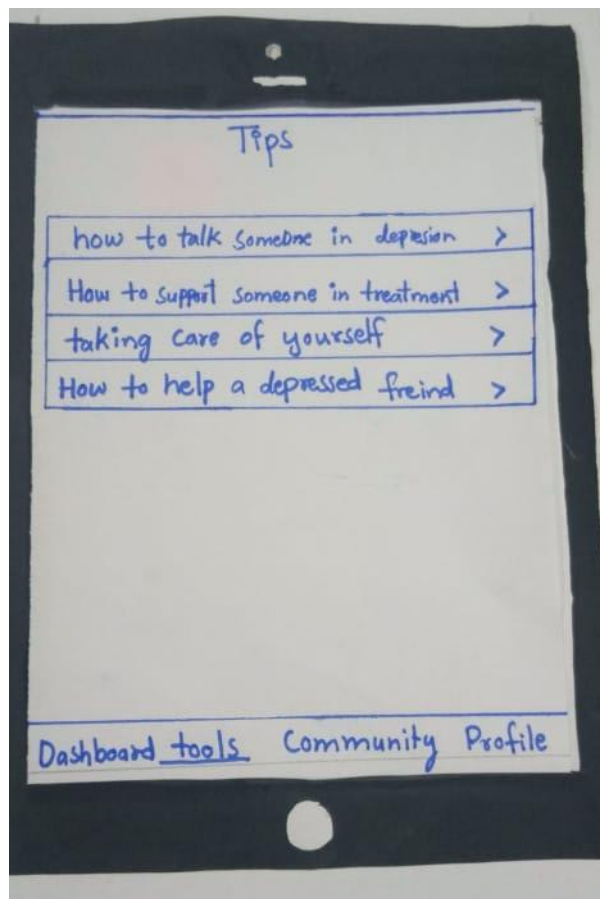 Tips
how to talk someone in depresion >
How to support someone in treatment >
taking care of yourself >
How to help a depressed freind >
Dashboard tools Community Profile